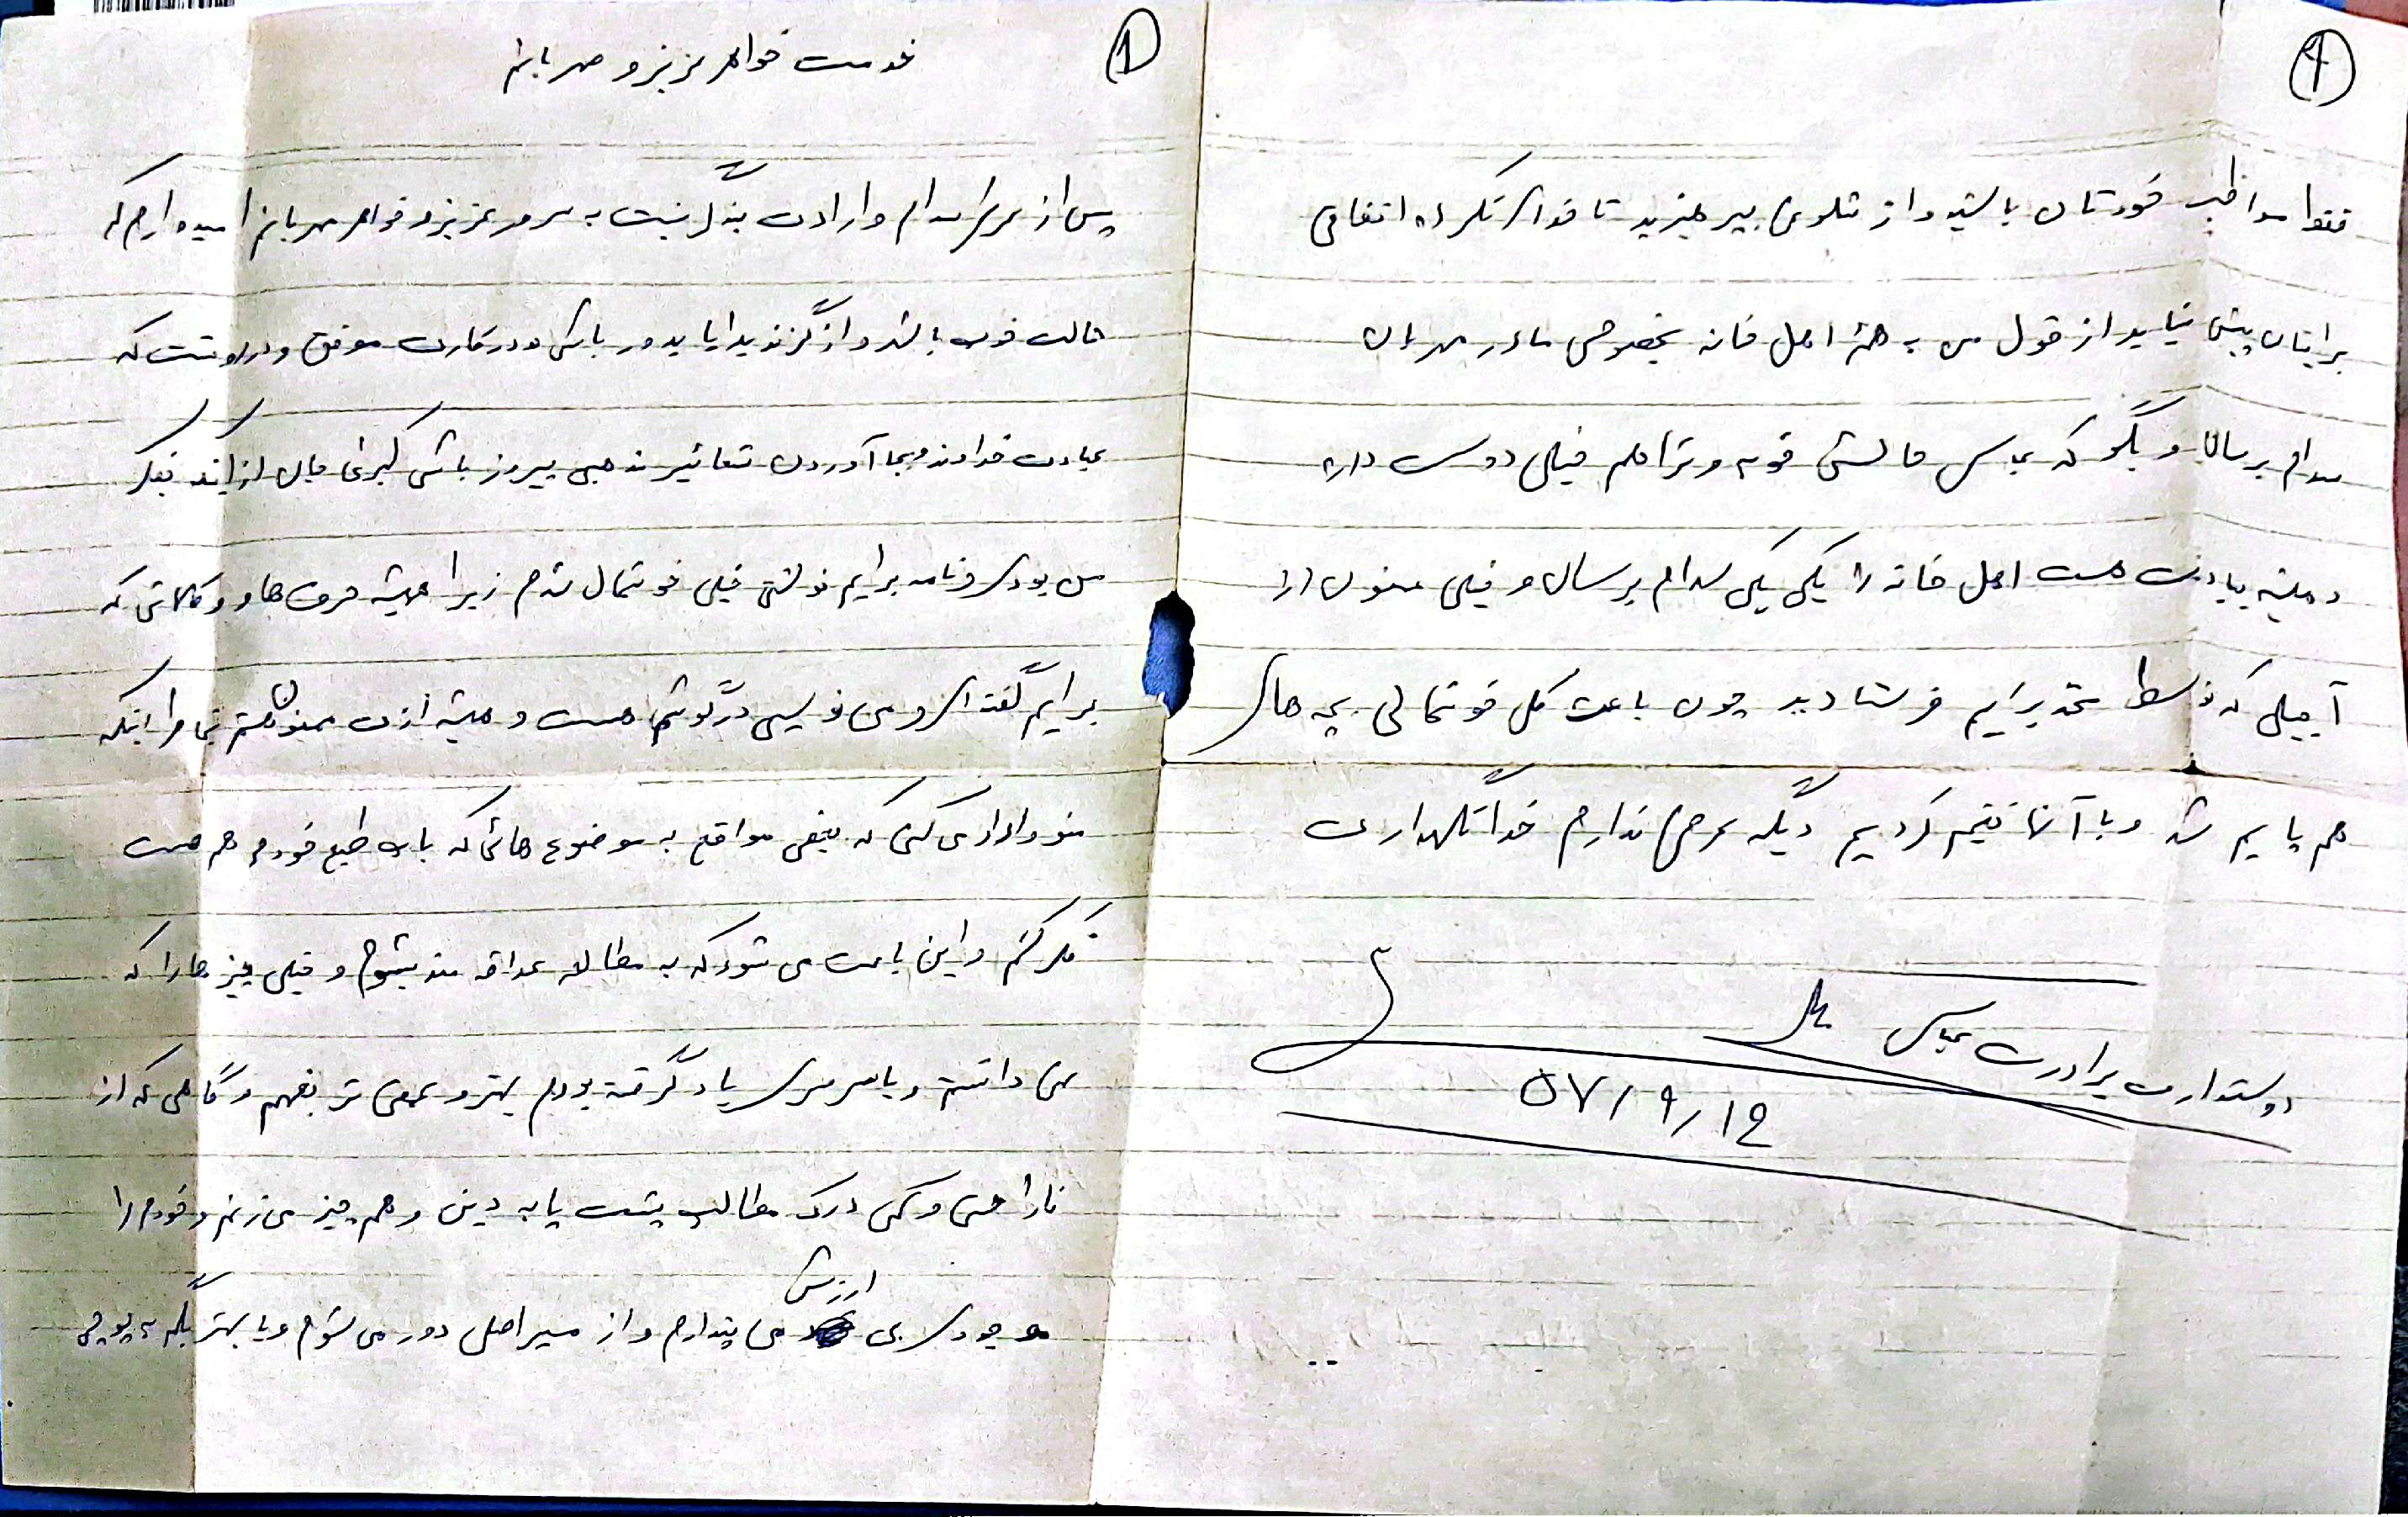 ۱
خدمت خواهر عزیز و مهربانم
پس از عرض سلام و ارادت بندگی نسبت به سرور عزیز و خواهر مهربانم امیدوارم که
حالت خوب باشد و از گزند بلایا بدور باشی و در کارت موفق و در
عبادت خداوند و بجا آوردن شعائر مذهبی پیروز باشی کبری جان از اینکه بفکر
من بودی و نامه برایم نوشتی خیلی خوشحال شدم زیرا همیشه حرف ها و کلماتی که
برایم گفته ای و می نویسی در گوشم هست و همیشه ازت ممنون هستم بخاطر اینکه
منو وادار می کنی که بعضی مواقع به موضوع هائی که باب طبع خودم هم هست
فکر کنم و این باعث می شود که به مطالعه علاقه مند بشوم و خیلی چیز ها را که
می دانستم و یا سرسری یاد گرفته بودم بهتر و عمقی تر بفهمم و گاهی که از
ناراحتی و کمی درک مطالب پشت پا به دین و همه چیز می زنم و خودم را
موجودی بی ارزش می پندارم و از مسیر اصلی دور می شوم و یا بهتر بگم به پوچی
۴
فقط مواظب خودتان باشید و از شلوغی بپرهیزید تا خدای نکرده اتفاقی
برایتان پیش نیاید از قول من به همه اهل خانه بخصوص مادر مهربان
سلام برسان و بگو که عباس حالش خوبه و ترا هم خیلی دوست داره
و همیشه بیادت هست اهل خانه را یکی یکی سلام برسان و خیلی ممنون از
آجیلی که توسط برایم فرستادید چون باعث کلی خوشحالی بچه های
هم پایم شد و با آنها تقسیم کردیم دیگه عرضی ندارم خدانگهدارت
دوستدارت برادرت عباس
۵۷/۹/۱۴